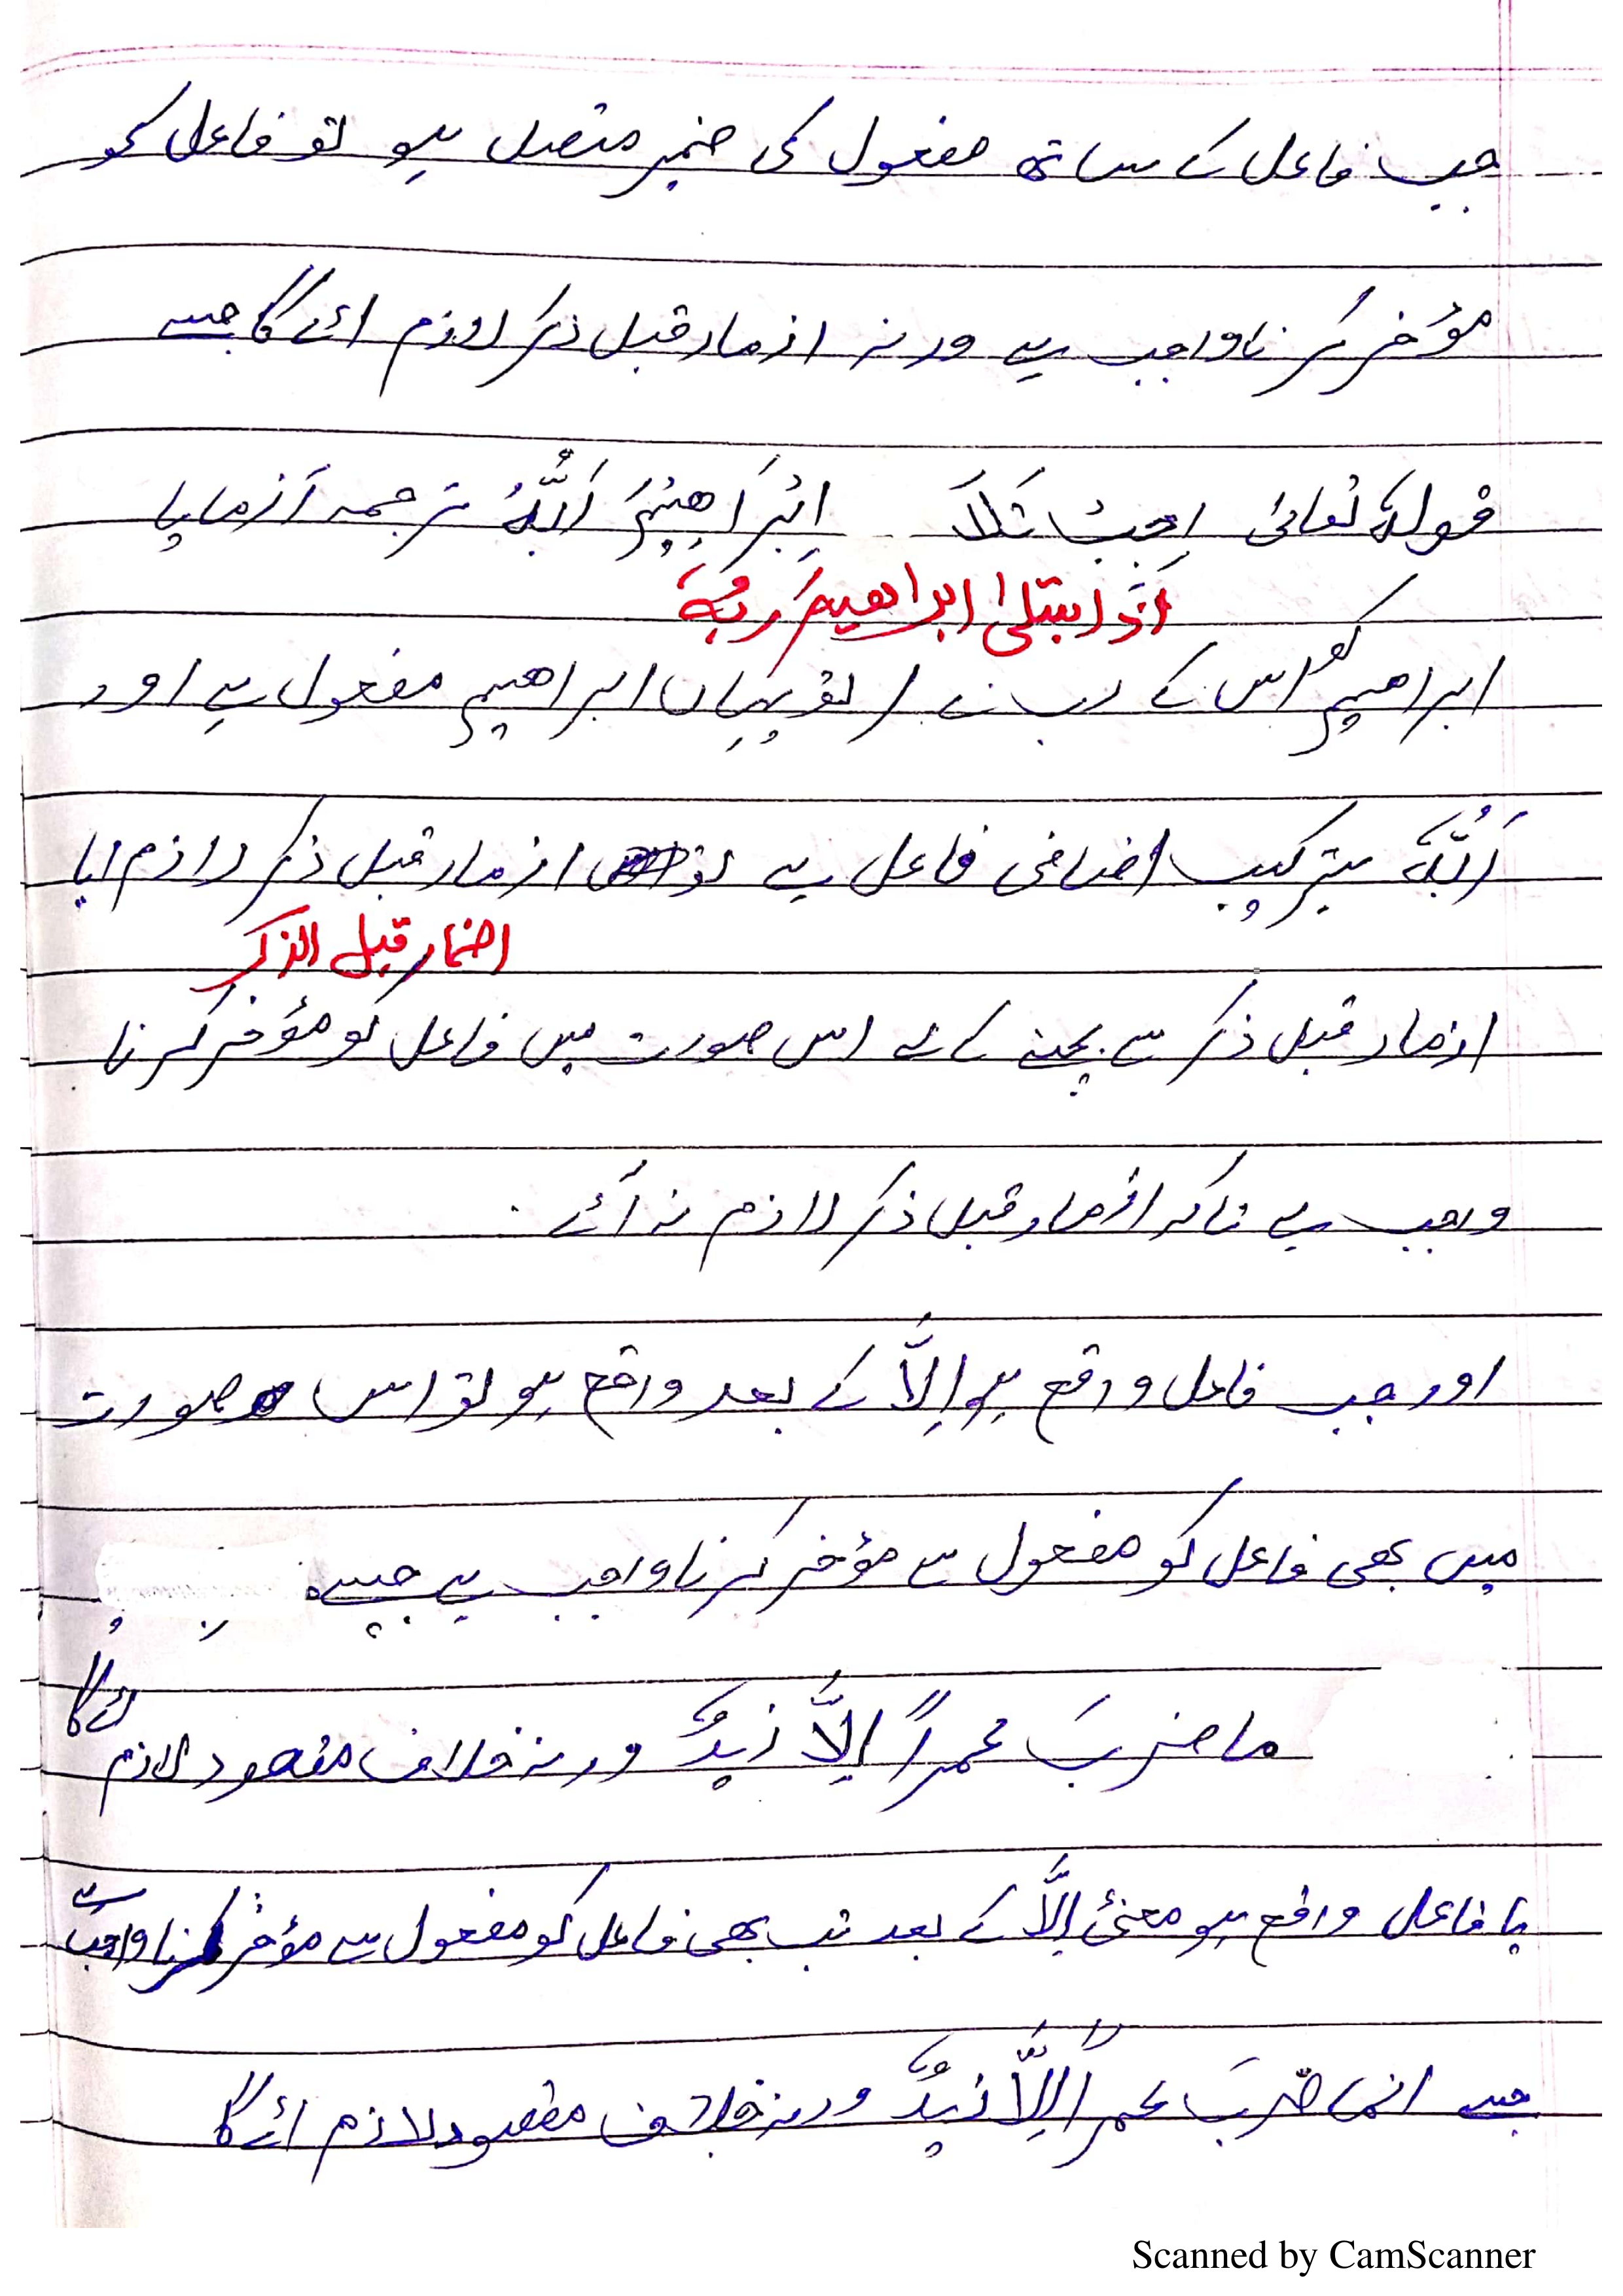 جب فاعل کے ساتھ مفعول کی ضمیر متصل ہو تو فاعل کو
مؤخر کرنا واجب ہے ورنہ ازمار قبل ذکر لازم ائے گا جیسے
قولہٗ تعالیٰ اِبْرَاھِیْمَ اَللّٰہُ ترجمہ آزمایا
اذ ابتلی ابراھیمَ ربُّہٗ
ابراھیم کو اس کے رب نے / تو یہاں ابراھیم مفعول ہے اور
اَللّٰہُ بترکیب اضافی فاعل ہے تو ازمار قبل ذکر لازم ایا
اضمار قبل الذکر
ازمار قبل ذکر سے بچنے کے لے اس صورت میں فاعل کو مؤخر کرنا
وجب ہے تاکہ ازمار قبل ذکر لازم نہ آئے۔
اور جب فاعل وقع ہو اِلَّا کے بعد واقع ہو تو اس صورت
میں بھی فاعل کو مفعول سے مؤخر کرنا واجب ہے جیسے
ما ضربَ عمراً اِلَّا زیدٌ ورنہ خلاف مقصود لازم ائے گا
یا فاعل واقع ہو معنیٔ اِلَّا کے بعد تب بھی فاعل کو مفعول سے مؤخر کرنا واجب ہے
جیسے انما ضربَ عمراً اِلَّا زیدٌ ورنہ خلاف مقصود لازم ائے گا
Scanned by CamScanner